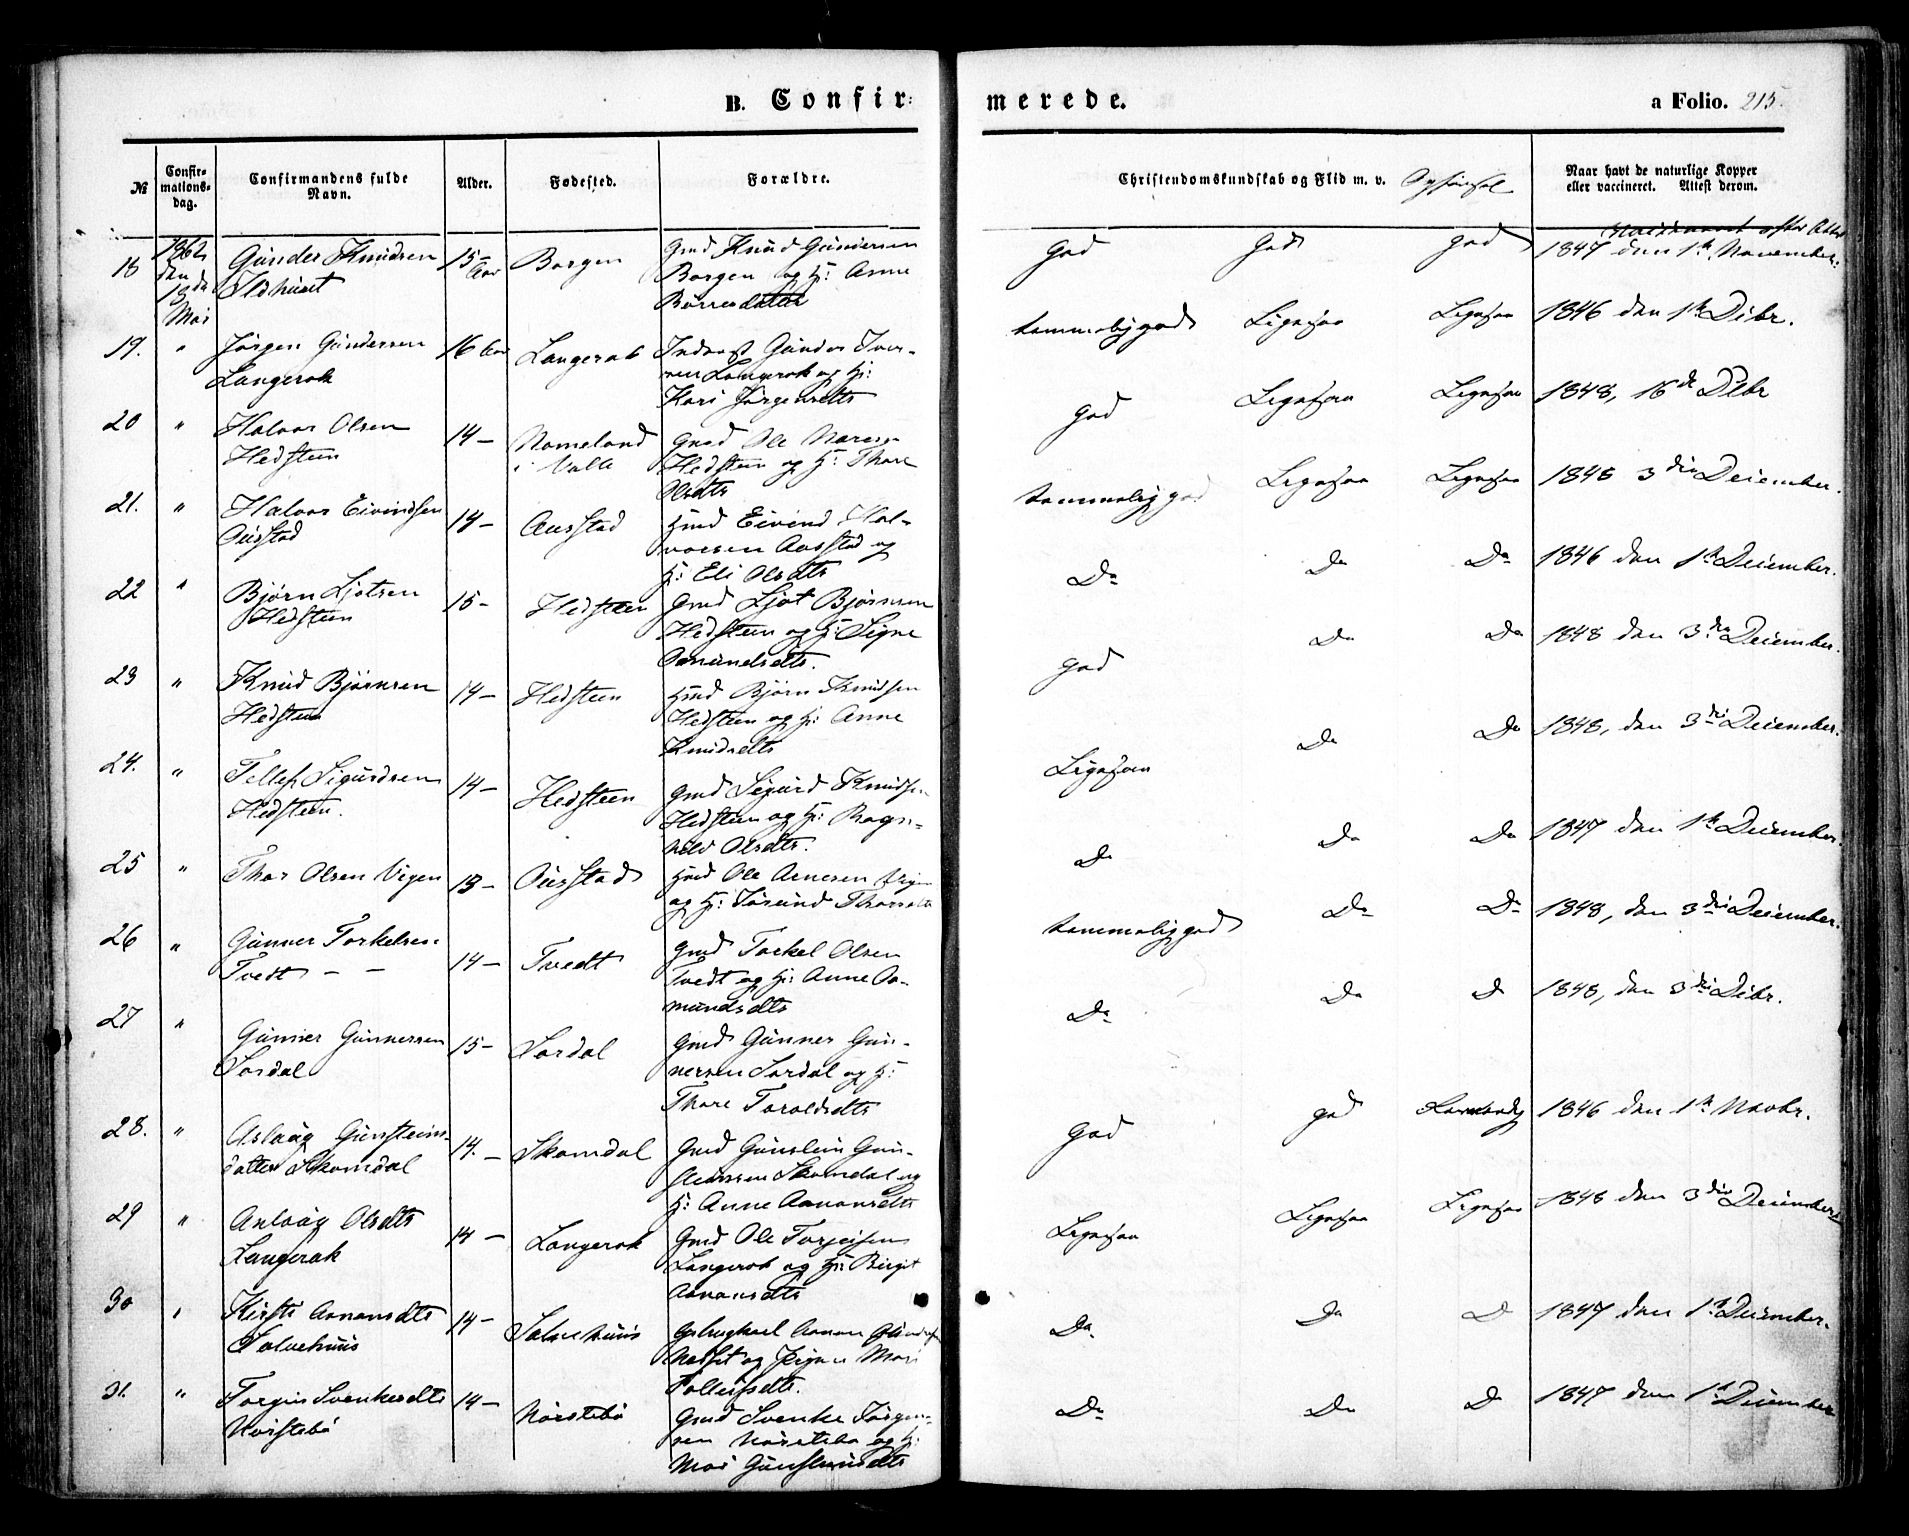 B. Confir:
merede.
a Folio. 215.
№
Confir-
mations-
dag.
Confirmandens fulde
Navn.
Alder.
Fødested.
Forældre.
Christendomskundskab og Flid m. v.
Naar havt de naturlige Kopper
eller vaccineret. Attest derom.
18
1862
den
18de
Mai
Gunder Knudsen
15-
Aar
Borgen
Gmd Knud Gundersen
Borgen og H: Anne
Børresdatter
God
God
God
1847 den 1te November.
19.
"
Jørgen Gundersen
Langerak
16 Aar
Langerak
Gunder Iver-
sen Langerak og H:
Kari Jørgensdtr
temmelig god
Ligesaa
Ligesaa
1846 den 1te Decbr.
20
"
Halvor Olsen
Hedsteen
14-
Nomeland
i Valle
Gmd Ole
Hedsteen og H: Thore
Olsdtr
God
Ligesaa
Ligesaa
1848, 16de Decbr
21.
"
Halvor Eivindsen
Ousstad
14-
Ausstad
Hmd Eivind Hal-
vorsen Ausstad og
H: Eli Olsdtr
temmelig god
Ligesaa
Ligesaa
1848 3die December.
22
"
Bjørn Ljotsen
Hedsteen
15-
Hedsteen
Gmd Ljot Bjørnsen
Hedsteen og H: Signe
Omundsdtr.
Do
Do
Do
1846 den 1te December.
23
"
Knud Bjørnsen
Hedsteen
14-
Hedsteen
Hmd Bjørn Knudsen
Hedsteen og H: Anne
Knudsdtr
God
Do
Do
1848 den 3die December.
24.
"
Tellef Sigurdsen
Hedsteen.
14-
Hedsteen
Gmd Sigurd Knudsen
Hedsteen og H: Ragn-
hild Olsdtr.
Ligesaa
Do
Do
1848, den 3die December.
25
"
Thor Olsen Vigen
13-
Ousstad
Hmd Ole Arnesen
og H: Jorund
Do
Do
Do
1847 den 1te December.
26
"
Gunner Torkelsen
Tvedt - -
14-
Tvedt
Gmd Torkel Olsen
Tvedt og H: Anne Aa-
mundsdtr
temmelig god
Do
Do
1848, den 3die December.
27
"
Gunner Gunnersen
Sordal
15-
Sordal
Gmd Gunner Gun-
nersen Sordal og H:
Thore Toroldsdtr
Do
Do
D
1848, den 3die Decbr.
28.
"
Aslaug Gunsteins-
datter Skomdal
14.-
Skomdal
Gmd Gunstein Gun-
steinsen Skomdal og
H: Anne Aanonsdtr
God
god
1846 den 1te Novbr.
29
"
Aslaug Olsdtr
Langerak
14-
Langerak
Gmd Ole Torjeisen
Langerak og H: Birgit
Aanonsdtr
Ligesaa
Ligesaa
Ligesaa
1848 den 3die December.
30
"
Kirsti Aanonsdtr
Solvehuus
14-
Solvehuus
Aanon
og Pigen Mari
Tollefsdtr.
Do
Do
D
1847 den 1te December.
31.
"
Torgun Svenkesdtr
Norstebø
14-
Norstebø
Gmd Svenke Jørgen-
sen Norstebø og H:
Mari Gunsteinsdtr
Do
Do
D
1847 den 1te December